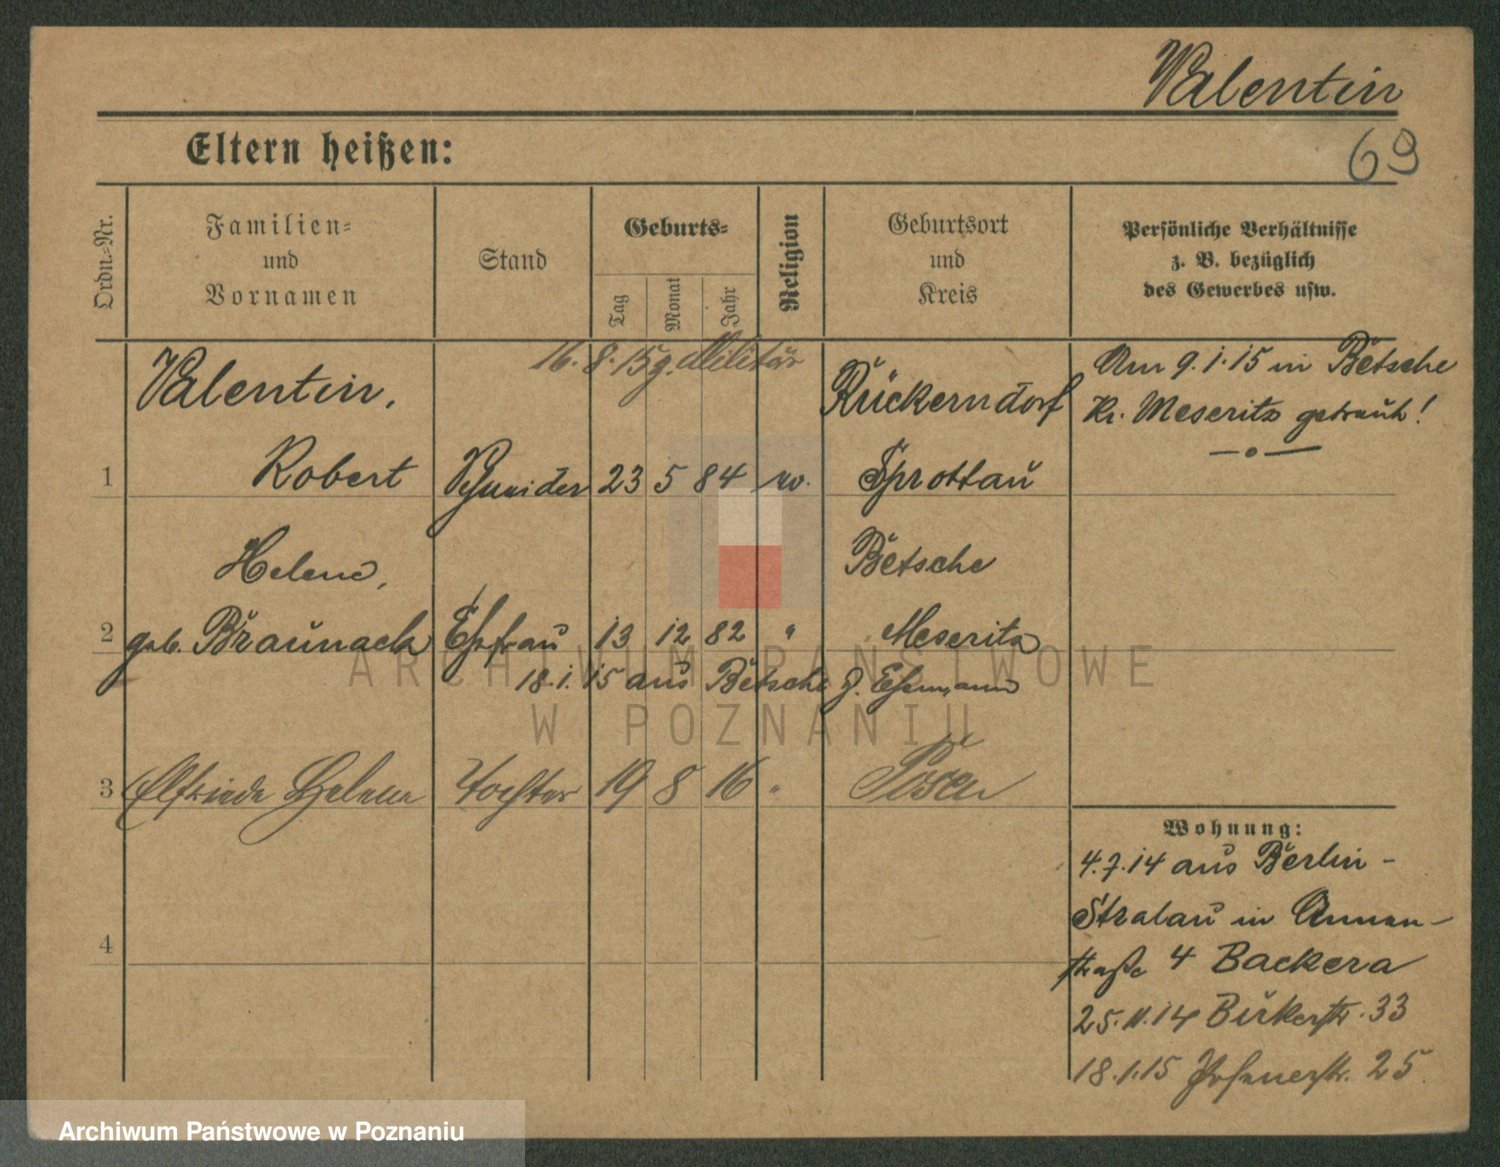 Valentin
69
Eltern heißen:
Ordn.-Nr.
Familien=
und
Vornamen
Stand
Geburts=
Tag
Monat
Jahr
Religion
Geburtsort
und
Kreis
Persönliche Verhältnisse
z. B. bezüglich
des Gewerbes usw.
16.8.15 z. Militär
Valentin,
Rückerndorf
Am 9.1.15 in Betsche
Kr. Meseritz getraut!
1 Robert Schneider 23 5 84 Sprottau
Helene, Betsche
2 geb. Braunack Ehefrau 13 12 82 " Meseritz
18.1.15 aus Betsche z. Ehemann
3 Elfriede Helene Tochter 19 8 16 " Posen
Wohnung:
4.7.14 aus Berlin-
Stralau in Annen-
straße 4 Backera
4
25.11.14 Bukerstr. 33
18.1.15 Posenerstr. 25
ARCHIWUM PAŃSTWOWE
W POZNANIU
Archiwum Państwowe w Poznaniu